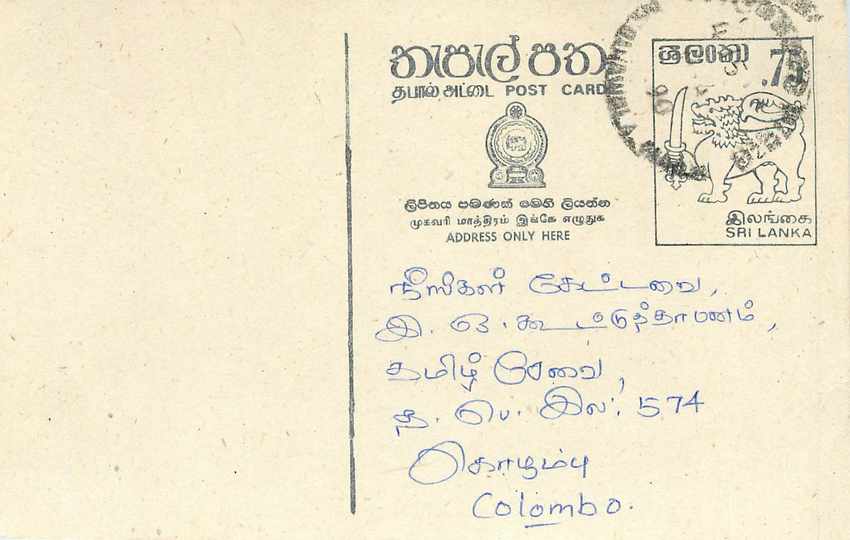 තැපැල් පත
தபால் அட்டை POST CARD
ශ්‍රී ලංකා
.75
இலங்கை
SRI LANKA
ලිපිනය පමණක් මෙහි ලියන්න
முகவரி மாத்திரம் இங்கே எழுதுக
ADDRESS ONLY HERE
நீங்கள் கேட்டவை,
இ. ஒ. கூட்டுத்தாபனம்,
தமிழ் சேவை,
த. பெ. இல: 574
கொழும்பு
Colombo.